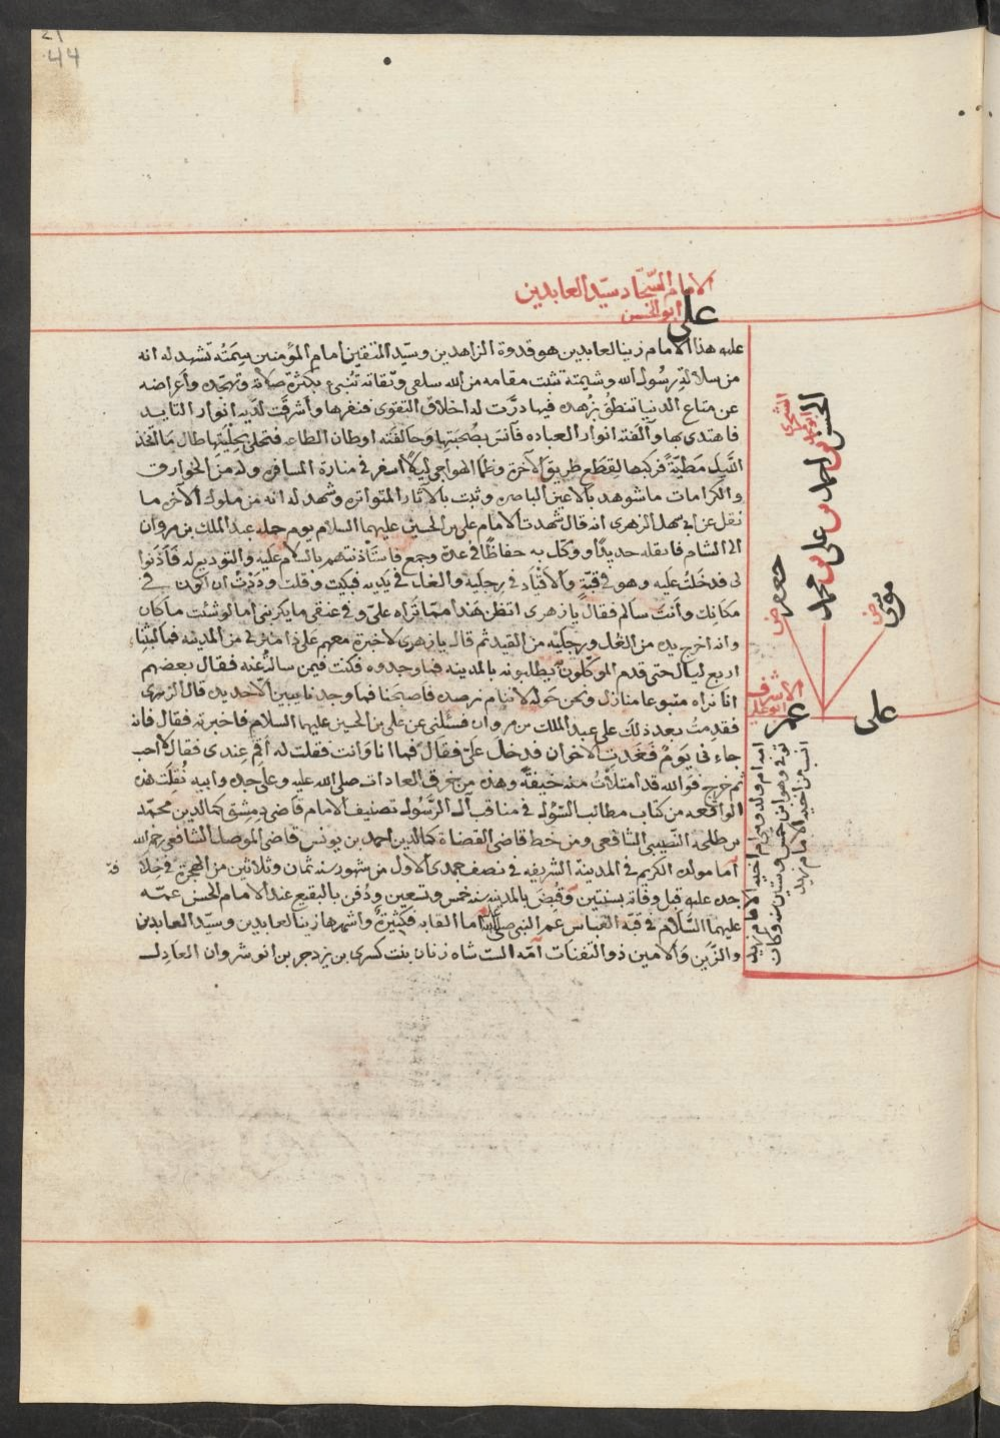 44
الامام السجاد سيد العابدين
على ابو الحسن
عليه هذا الامام زين العابدين هو قدوة الزاهدين وسيد المتقين امام المؤمنين سِمَتُه تشهد له انه
من سلالة رسُول الله وشيمته تثبت مقامه من الله سلفى وثقاته تنبىء بكثرة صلاته وتهجّده واعراضه
عن متاع الدنيا تنطق بزُهده فيها درّت له اخلاق التقوى فتفرها وأشرقت لديه انوار التايد
فاهتدى بها وآلفته انوار العباده فآنسَ بصُحبَتِها وحالفَته اوطان الطاعه فتحلى بحِليَتِها طال مَا اتخذ
الليل مَطيّةً فركبها لقطع طريق الآخرة وظما الهواجر دليلاً اسفر فى منارة المسافر وله من الخوارق
والكرامات ما شوهد بالاعين الباصره وثبت بالاثار المتواتره وشهد له انه من ملوك الآخره ما
نقل عن ابى سهل الزهرى انه قال شهدت الامام على بن الحسين عليهما السلام يوم حمله عبد الملك بن مروان
الى الشام فاثقله حديدًا ووكل به حفاظًا فى عدة وجمع فاستأذنتهم بالسلام عليه والتوديع له فَأذنوا
لى فدخلتُ عليه وهو فى قبّةٍ والاقياد فى رجليه والغل فى يديه فبكيت وقلت وددتُ ان اكون فى
مكانك وأنت سالم فقال يا زهرى اتظن هذا ممّا تراه علىّ وفى عنقى مما يكربنى اما لو شئت ما كان
وانه اخرج يده من الغل ورجليه من القيد ثم قال يا زهرى لا جزت معهم على ذا منزلتى من المدينه فما لبثنا
اربع ليال حتى قدم الموكلون يطلبونه بالمدينه فما وجدوه فكنت فيمن سالهُ عنه فقال بعضهم
انا نراه متبوعا منازل ونحن حوله لا ننام نرصده فاصبحنا فما وجدنا بين الا حديده قال الزهرى
فقدمتُ بعد ذلك على عبد الملك بن مروان فسئلنى عن على بن الحسين عليهما السلام فاخبرته فقال فانه
جاءنى يومُ فقده الاخوان فدخل علىّ فقال فما انا وأنت فقلت له أقم عندى فقال لا احب
ثم خرج فوالله قد امتلأتُ منه خيفةً وهذه من خرق العادات صلى الله عليه وعلى جده وابيه نُقِلت هذه
الواقعه من كتاب مطالب السَّوُل فى مناقب آل الرَّسُول تصنيف الامام قاضى دمشق كمال الدين محمّد
بن طلحه النصيبى الشافعى ومن خط قاضى القضاة كمال الدين احمد بن يونس قاضى الموصل الشافعى رحم الله
أما مولده الكريم فى المدينة الشريفه فى نصف جمدى الاول من شهور سنه ثمان وثلاثين من الهجرة فى خلافة
جده عليه قبل وفاته بسنتين وقُبِضَ بالمدينه سنه خمس وتسعين ودُفن بالبقيع عند الامام الحسن عمّه
عليهما السَّلام فى قبّه العباس عم النبى صلى الله اما القابه فكثيرةٌ واشهرها زين العابدين وسيّد العابدين
والزّين والامين ذو الثفنات أمّه الست شاه زنان بنت كسرى بن يزدجر بن انوشروان العادل
الحسن بن احمد بن على بن محمد
الشجرى
جعفر
موسى
الاشرف
عمر ابو على
على